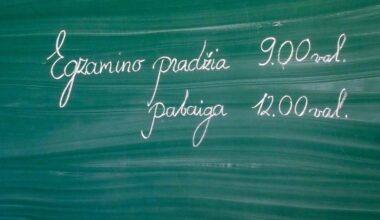 Egzamino pradžia 9.00 val.
pabaiga 12.00 val.